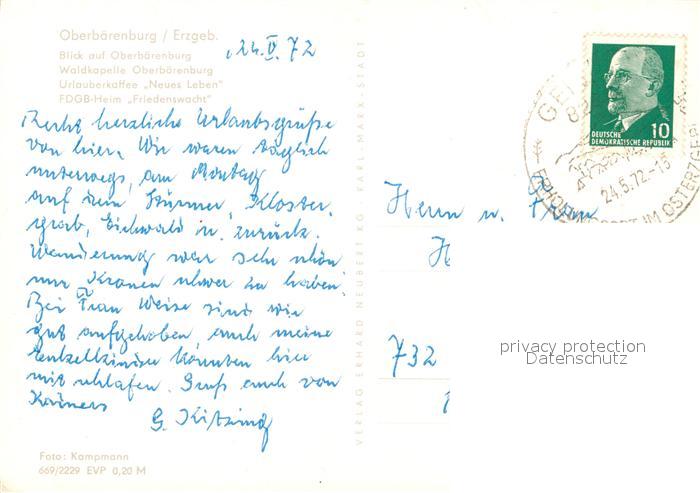 Oberbärenburg / Erzgeb.
Blick auf Oberbärenburg
Waldkapelle Oberbärenburg
Urlauberkaffee „Neues Leben"
FDGB-Heim „Friedenswacht"
24.V.72
Recht herzliche Urlaubsgrüße
von hier. Wir waren täglich
unterwegs, am Montag
auf dem Stürmer, Kloster,
grab, Eichwald u. zurück.
Wanderung war sehr schön
nur Kronen schwer zu haben.
Bei Frau Weise sind wir
gut aufgehoben, auch meine
Enkelkinder könnten hier
mit schlafen. Gruß auch von
G. Kitzing
Foto: Kampmann
669/2229 EVP 0,20 M
VERLAG ERHARD NEUBERT KG KARL-MARX-STADT
DEUTSCHE
DEMOKRATISCHE REPUBLIK
10
GEI
82
24.5.72-15
ERHOLUNGSORT IM OSTERZGEB
Herrn u. Frau
H
732
privacy protection
Datenschutz